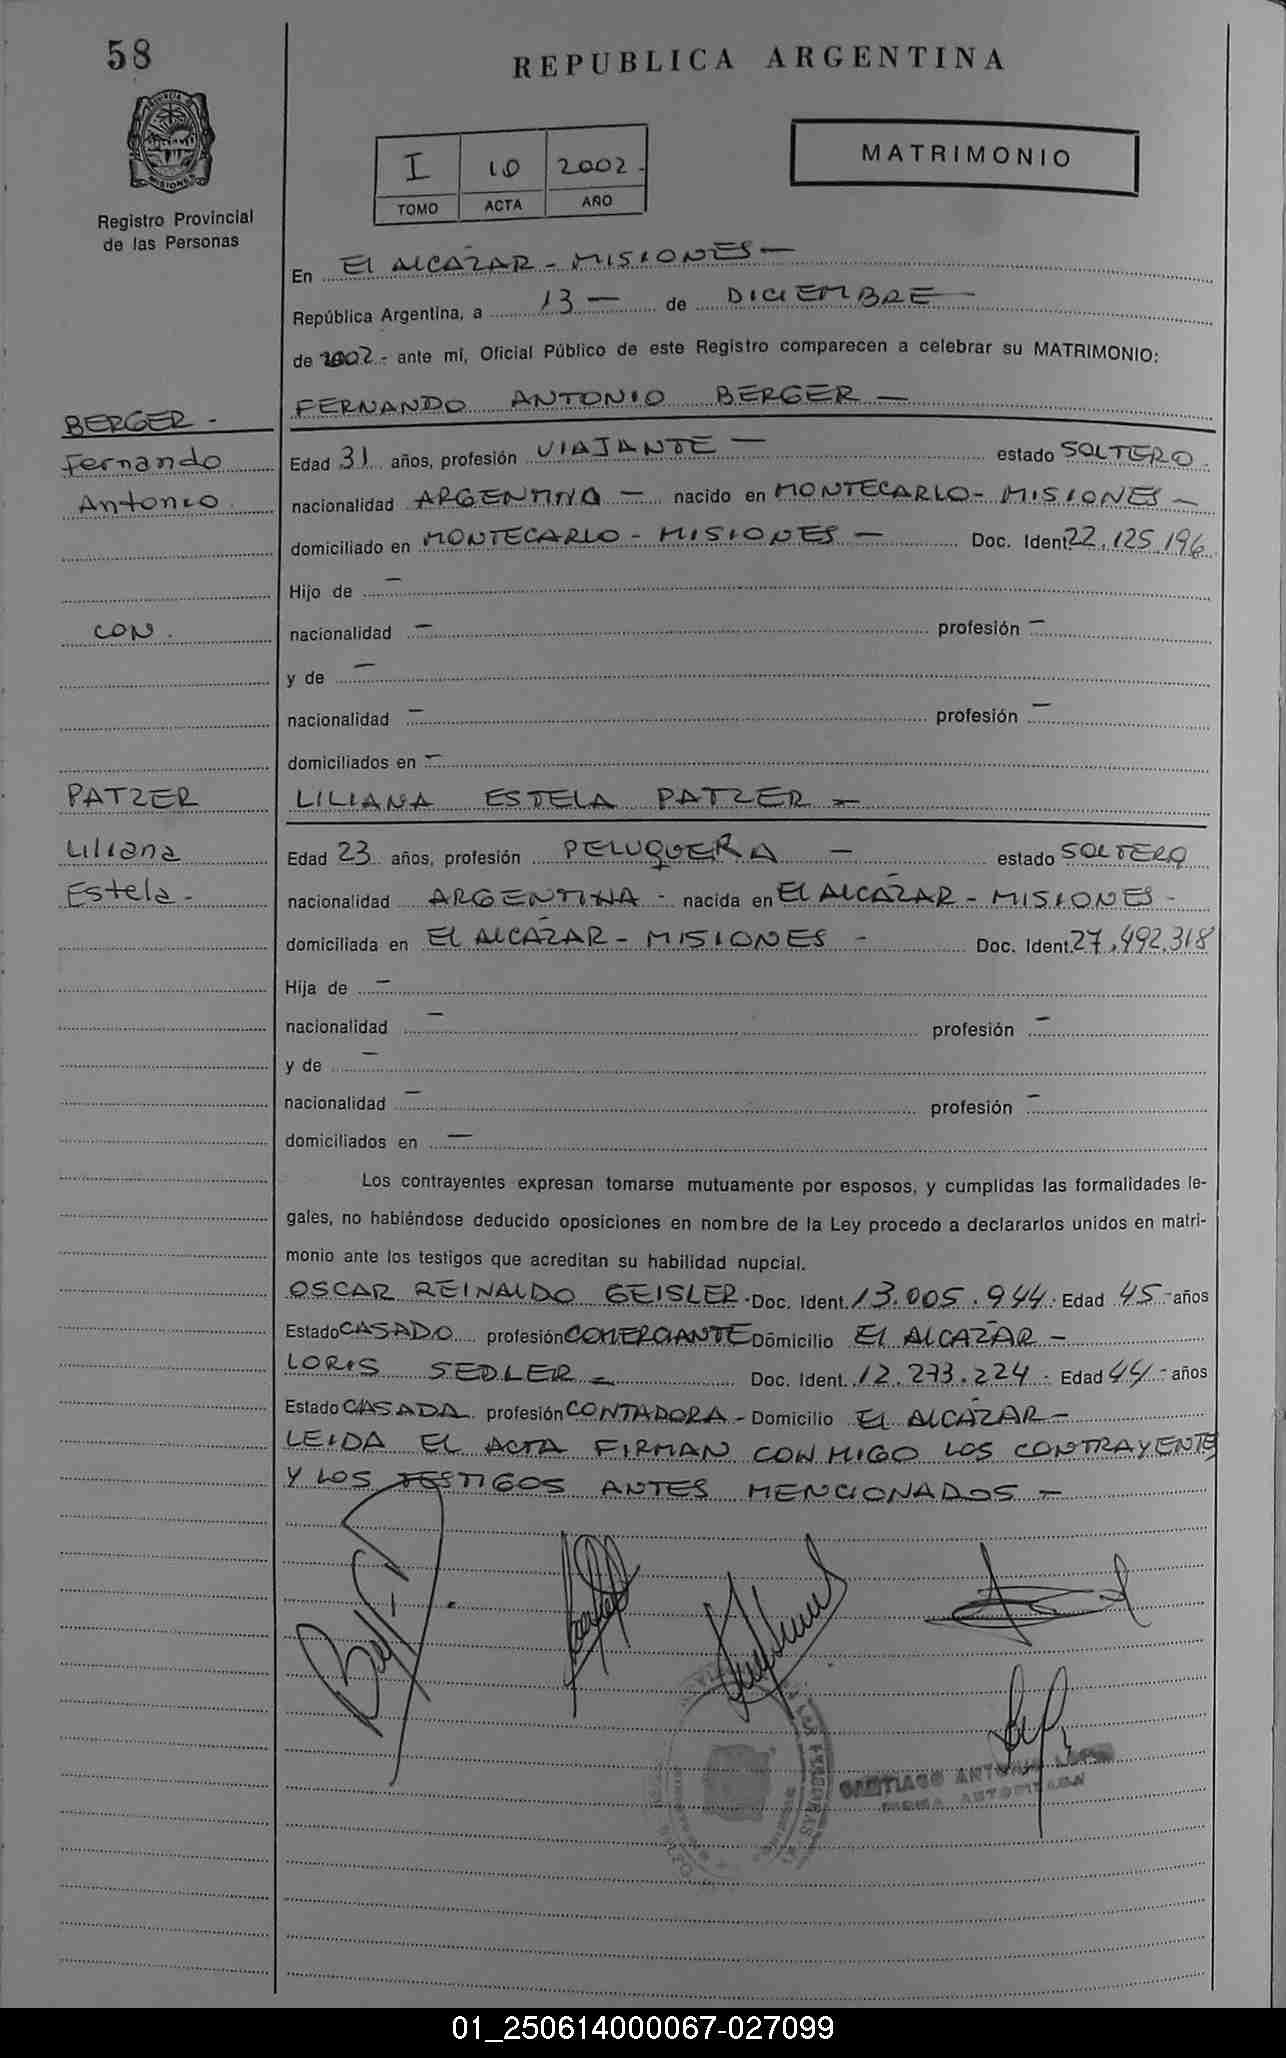 58
REPUBLICA ARGENTINA
I 10 2002.
TOMO ACTA AÑO
MATRIMONIO
Registro Provincial
de las Personas
En El ALCAZAR - MISIONES —
República Argentina, a 13 — de DICIEMBRE —
de 2002 - ante mí, Oficial Público de este Registro comparecen a celebrar su MATRIMONIO:
BERGER -
Fernando
Antonio
CON.
PATZER
Liliana
Estela -
FERNANDO ANTONIO BERGER —
Edad 31 años, profesión VIAJANTE — estado SOLTERO.
nacionalidad ARGENTINA — nacido en MONTECARLO - MISIONES —
domiciliado en MONTECARLO - MISIONES — Doc. Ident. 22.125.196
Hijo de —
nacionalidad — profesión —
y de —
nacionalidad — profesión —
domiciliados en —
LILIANA ESTELA PATZER —
Edad 23 años, profesión PELUQUERA — estado SOLTERA
nacionalidad ARGENTINA - nacida en El ALCAZAR - MISIONES -
domiciliada en EL ALCAZAR - MISIONES - Doc. Ident. 27.492.318
Hija de —
nacionalidad — profesión —
y de —
nacionalidad — profesión —
domiciliados en —
Los contrayentes expresan tomarse mutuamente por esposos, y cumplidas las formalidades le-
gales, no habiéndose deducido oposiciones en nombre de la Ley procedo a declararlos unidos en matri-
monio ante los testigos que acreditan su habilidad nupcial.
OSCAR REINALDO GEISLER - Doc. Ident. 13.005.944 - Edad 45 - años
Estado CASADO profesión COMERCIANTE Domicilio El ALCAZAR —
LORIS SEDLER — Doc. Ident. 12.273.224 - Edad 44 - años
Estado CASADA profesión CONTADORA - Domicilio El ALCAZAR —
LEIDA EL ACTA FIRMAN CONMIGO LOS CONTRAYENTES
Y LOS TESTIGOS ANTES MENCIONADOS —
SANTIAGO ANTONIO LOPEZ
FIRMA AUTORIZADA
01_250614000067-027099